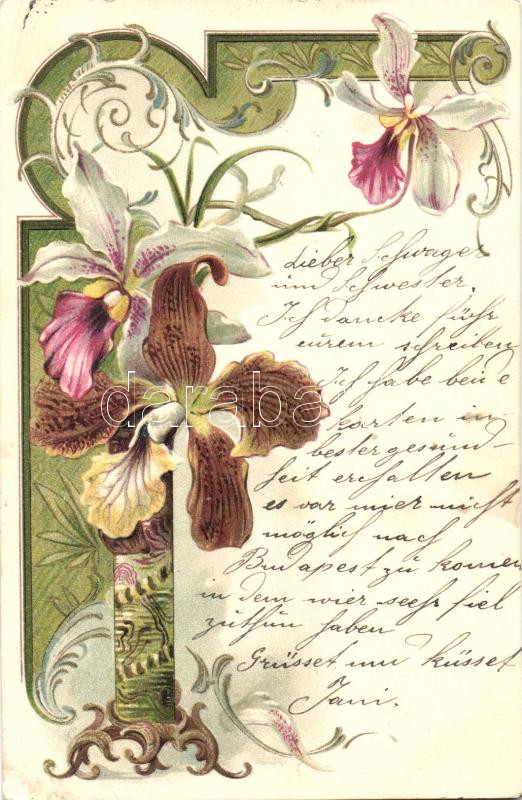 Lieber Schwager
und Schwester.
Ich dancke führ
eurem schreiben
Ich habe beide
karten in
bester gesund-
heit erchalten
es var mier nicht
möglich nach
Budapest zu komen
in dem wier seehr fiel
zuthun haben
Grüsset und küsset
Jani.
darabanth